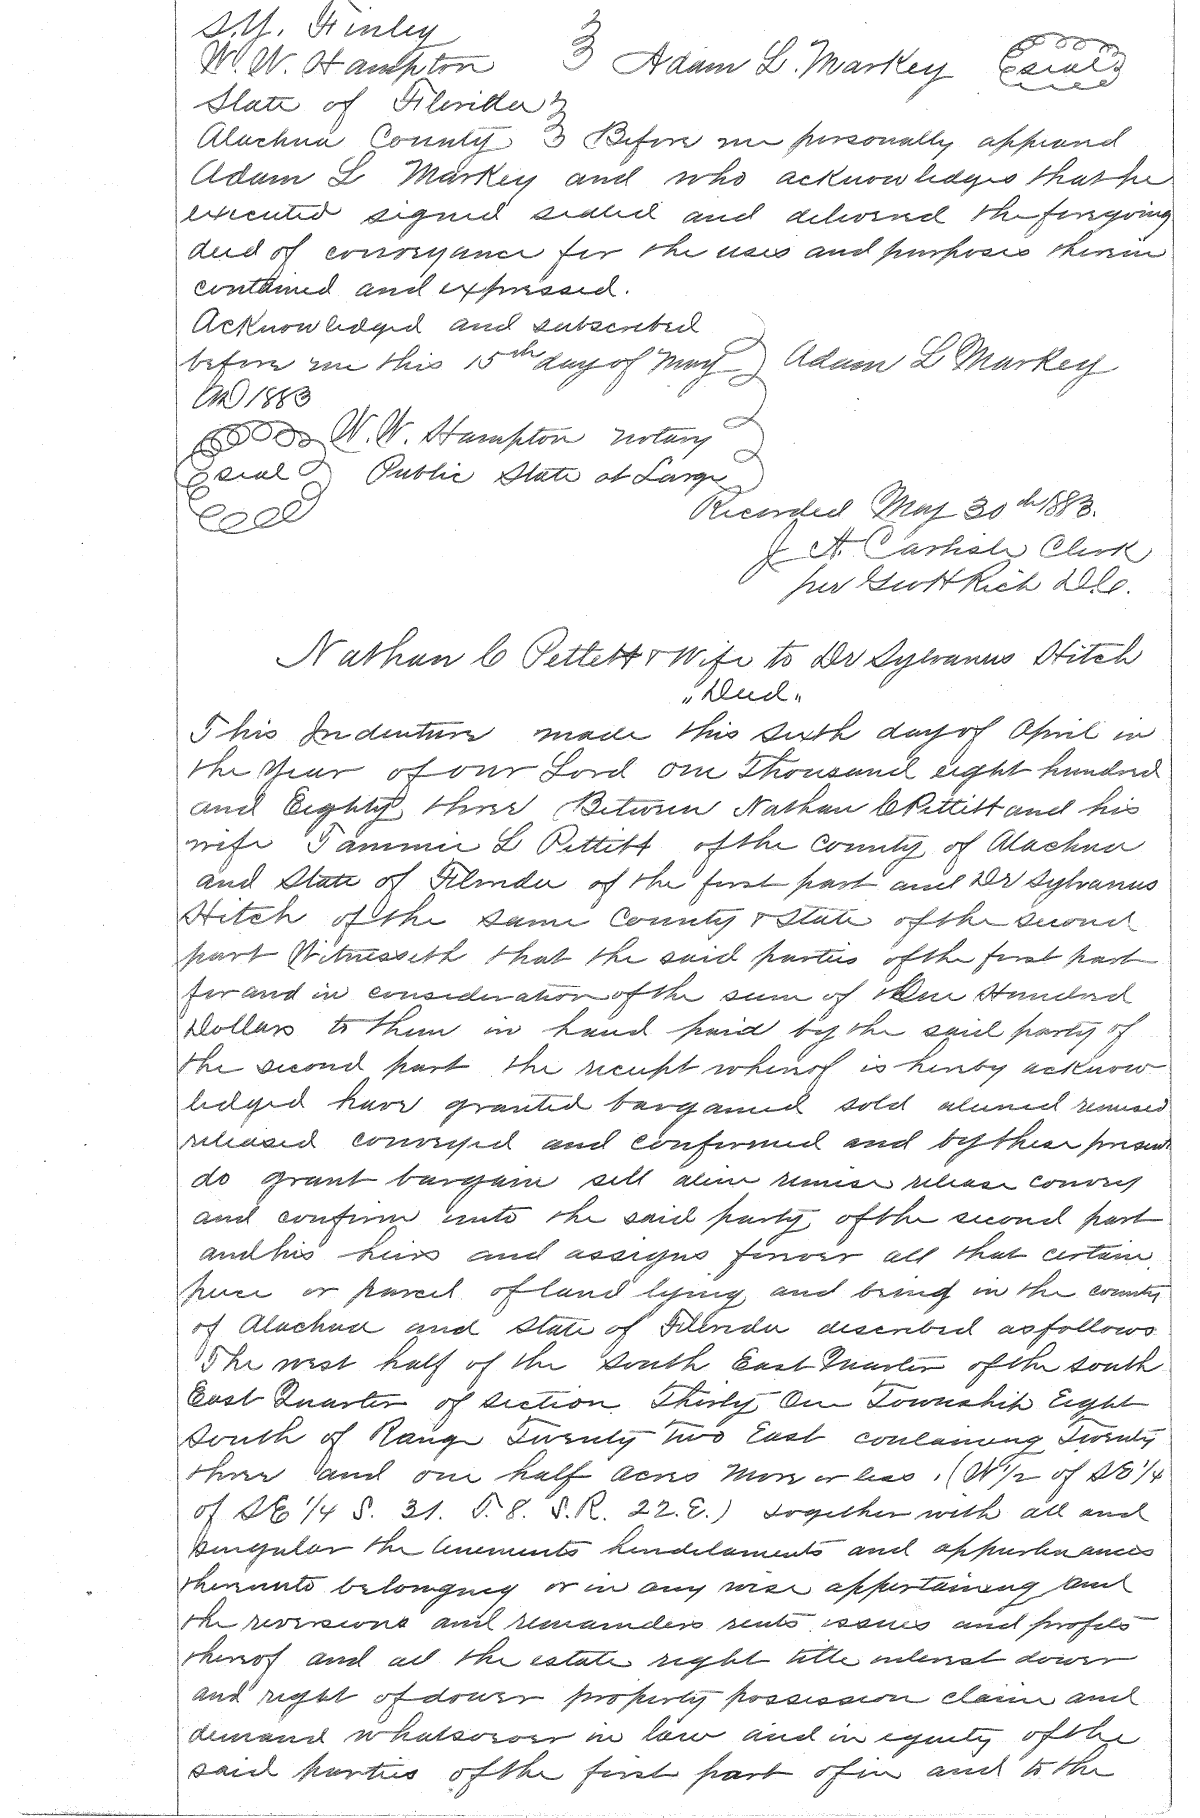 S.Y. Finley
W. W. Hampton Adam L. Markey seal
State of Florida
Alachua County Before me personally appeared
Adam L Markey and who acknowledges that he
executed signed sealed and delivered the foregoing
deed of conveyance for the uses and purposes therein
contained and expressed.
Acknowledged and subscribed
before me this 15th day of May Adam L Markey
AD 1883
W. W. Hampton notary
seal Public State at Large
Recorded May 30th 1883.
J A. Carlisle Clerk
per Geo H Rich D.C.
Nathan C Pettitt & Wife to Dr Sylvanus Hitch
"Deed"
This Indenture made this sixth day of April in
the Year of our Lord One Thousand eight hundred
and Eighty three Between Nathan C Pettitt and his
wife Tammie L Pettitt of the County of Alachua
and State of Florida of the first part and Dr Sylvanus
Hitch of the same County & State of the second
part Witnesseth that the said parties of the first part
for and in consideration of the sum of One Hundred
Dollars to them in hand paid by the said party of
the second part the receipt whereof is hereby acknow
ledged have granted bargained sold aliened remised
released conveyed and confirmed and by these presents
do grant bargain sell alien remise release convey
and confirm unto the said party of the second part
and his heirs and assigns forever all that certain
piece or parcel of land lying and being in the county
of Alachua and State of Florida described as follows
The west half of the South East Quarter of the South
East Quarter of section Thirty One Township Eight
South of Range Twenty Two East containing Twenty
three and one half Acres More or less. (W 1/2 of SE 1/4
of SE 1/4 S. 31. T. 8. S. R. 22. E.) together with all and
singular the tenements hereditaments and appurtenances
thereunto belonging or in any wise appertaining and
the reversions and remainders rents issues and profits
thereof and all the estate right title interest dower
and right of dower property possession claim and
demand whatsoever in law and in equity of the
said parties of the first part of in and to the